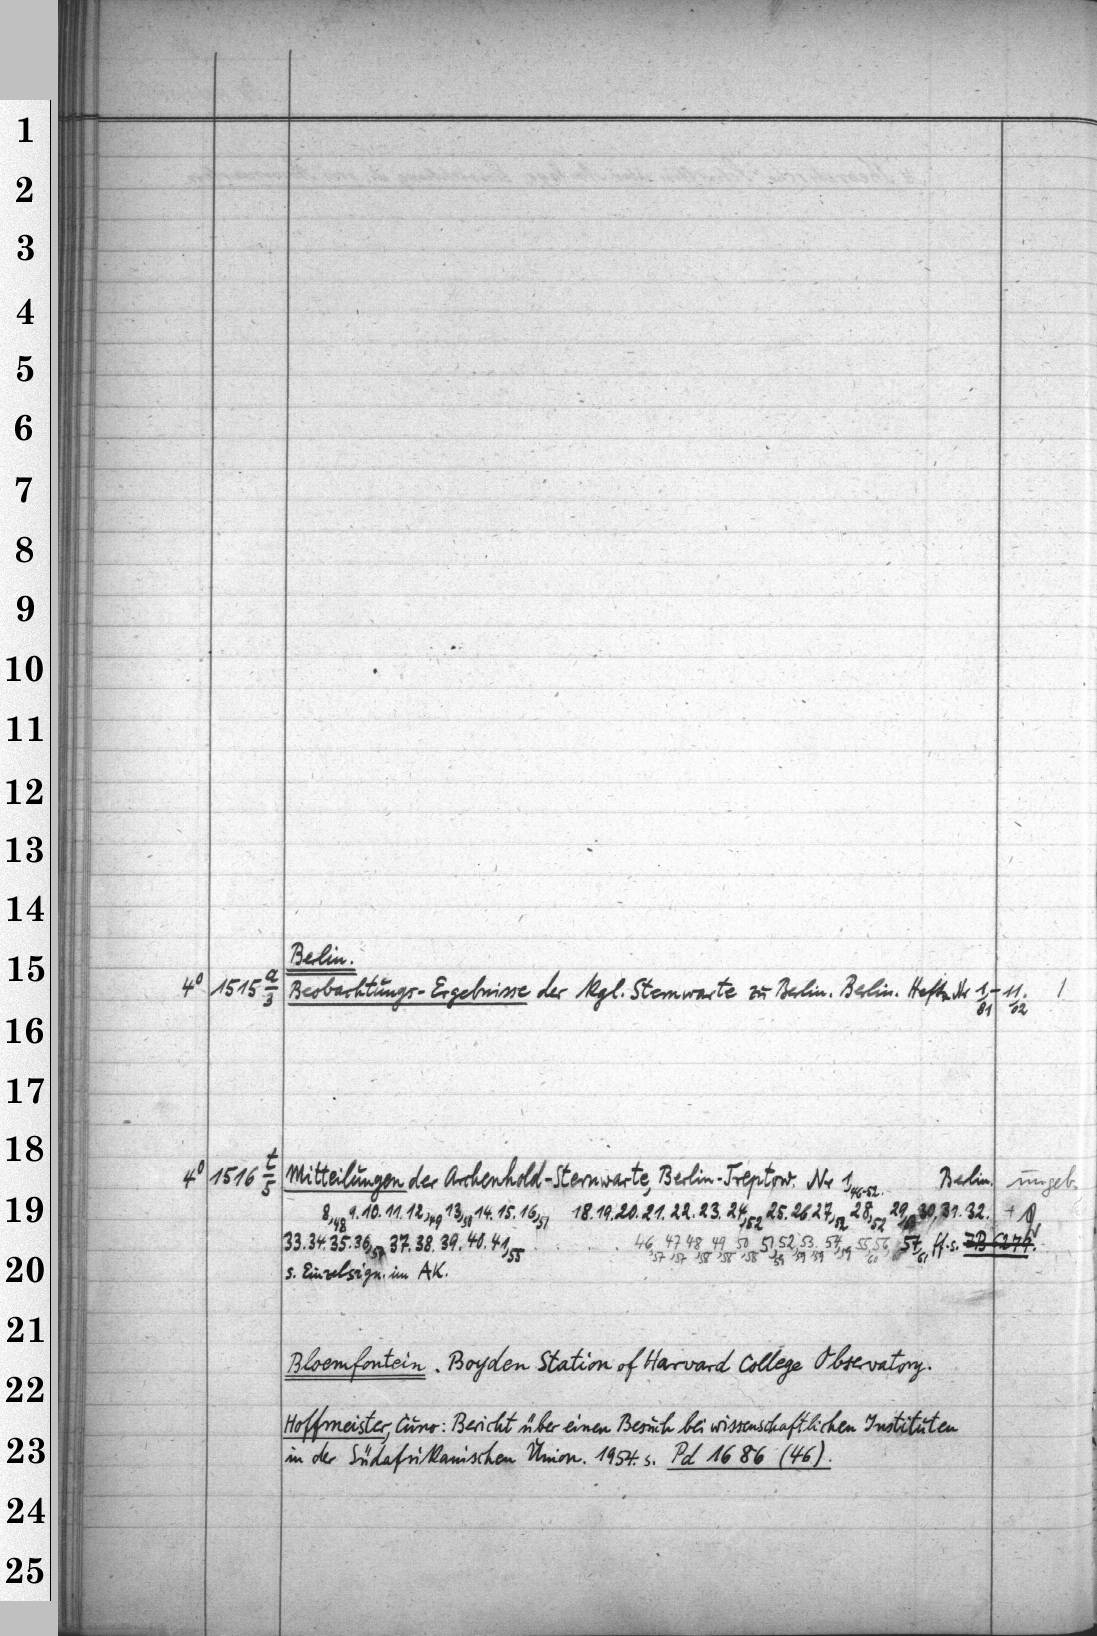 1
2
3
4
5
6
7
8
9
10
11
12
13
14
15
16
17
18
19
20
21
22
23
24
25
Berlin.
4° 1515 a/3 Beobachtungs-Ergebnisse der Kgl. Sternwarte zu Berlin. Berlin. Heft Nr 1,81-11,02. 1
4° 1516 t/5 Mitteilungen der Archenhold-Sternwarte, Berlin-Treptow. Nr 1,46-52. Berlin. ungeb.
8,48 9.10.11.12,49 13,50 14.15.16,51 18.19.20.21.22.23.24,52 25.26 27,52 28,52 29, 30,31.32.
33.34.35.36,53 37.38.39.40.41,55 46,57 47,57 48,58 49,58 50,58 51,52,59 53,59 54,59 55,56,60 57,61 ff. s. ZB 6274.
s. Einzelsign. im AK.
Bloemfontein. Boyden Station of Harvard College Observatory.
Hoffmeister, Cuno: Bericht über einen Besuch bei wissenschaftlichen Instituten
in der Südafrikanischen Union. 1954. s. Pd 1686 (46).